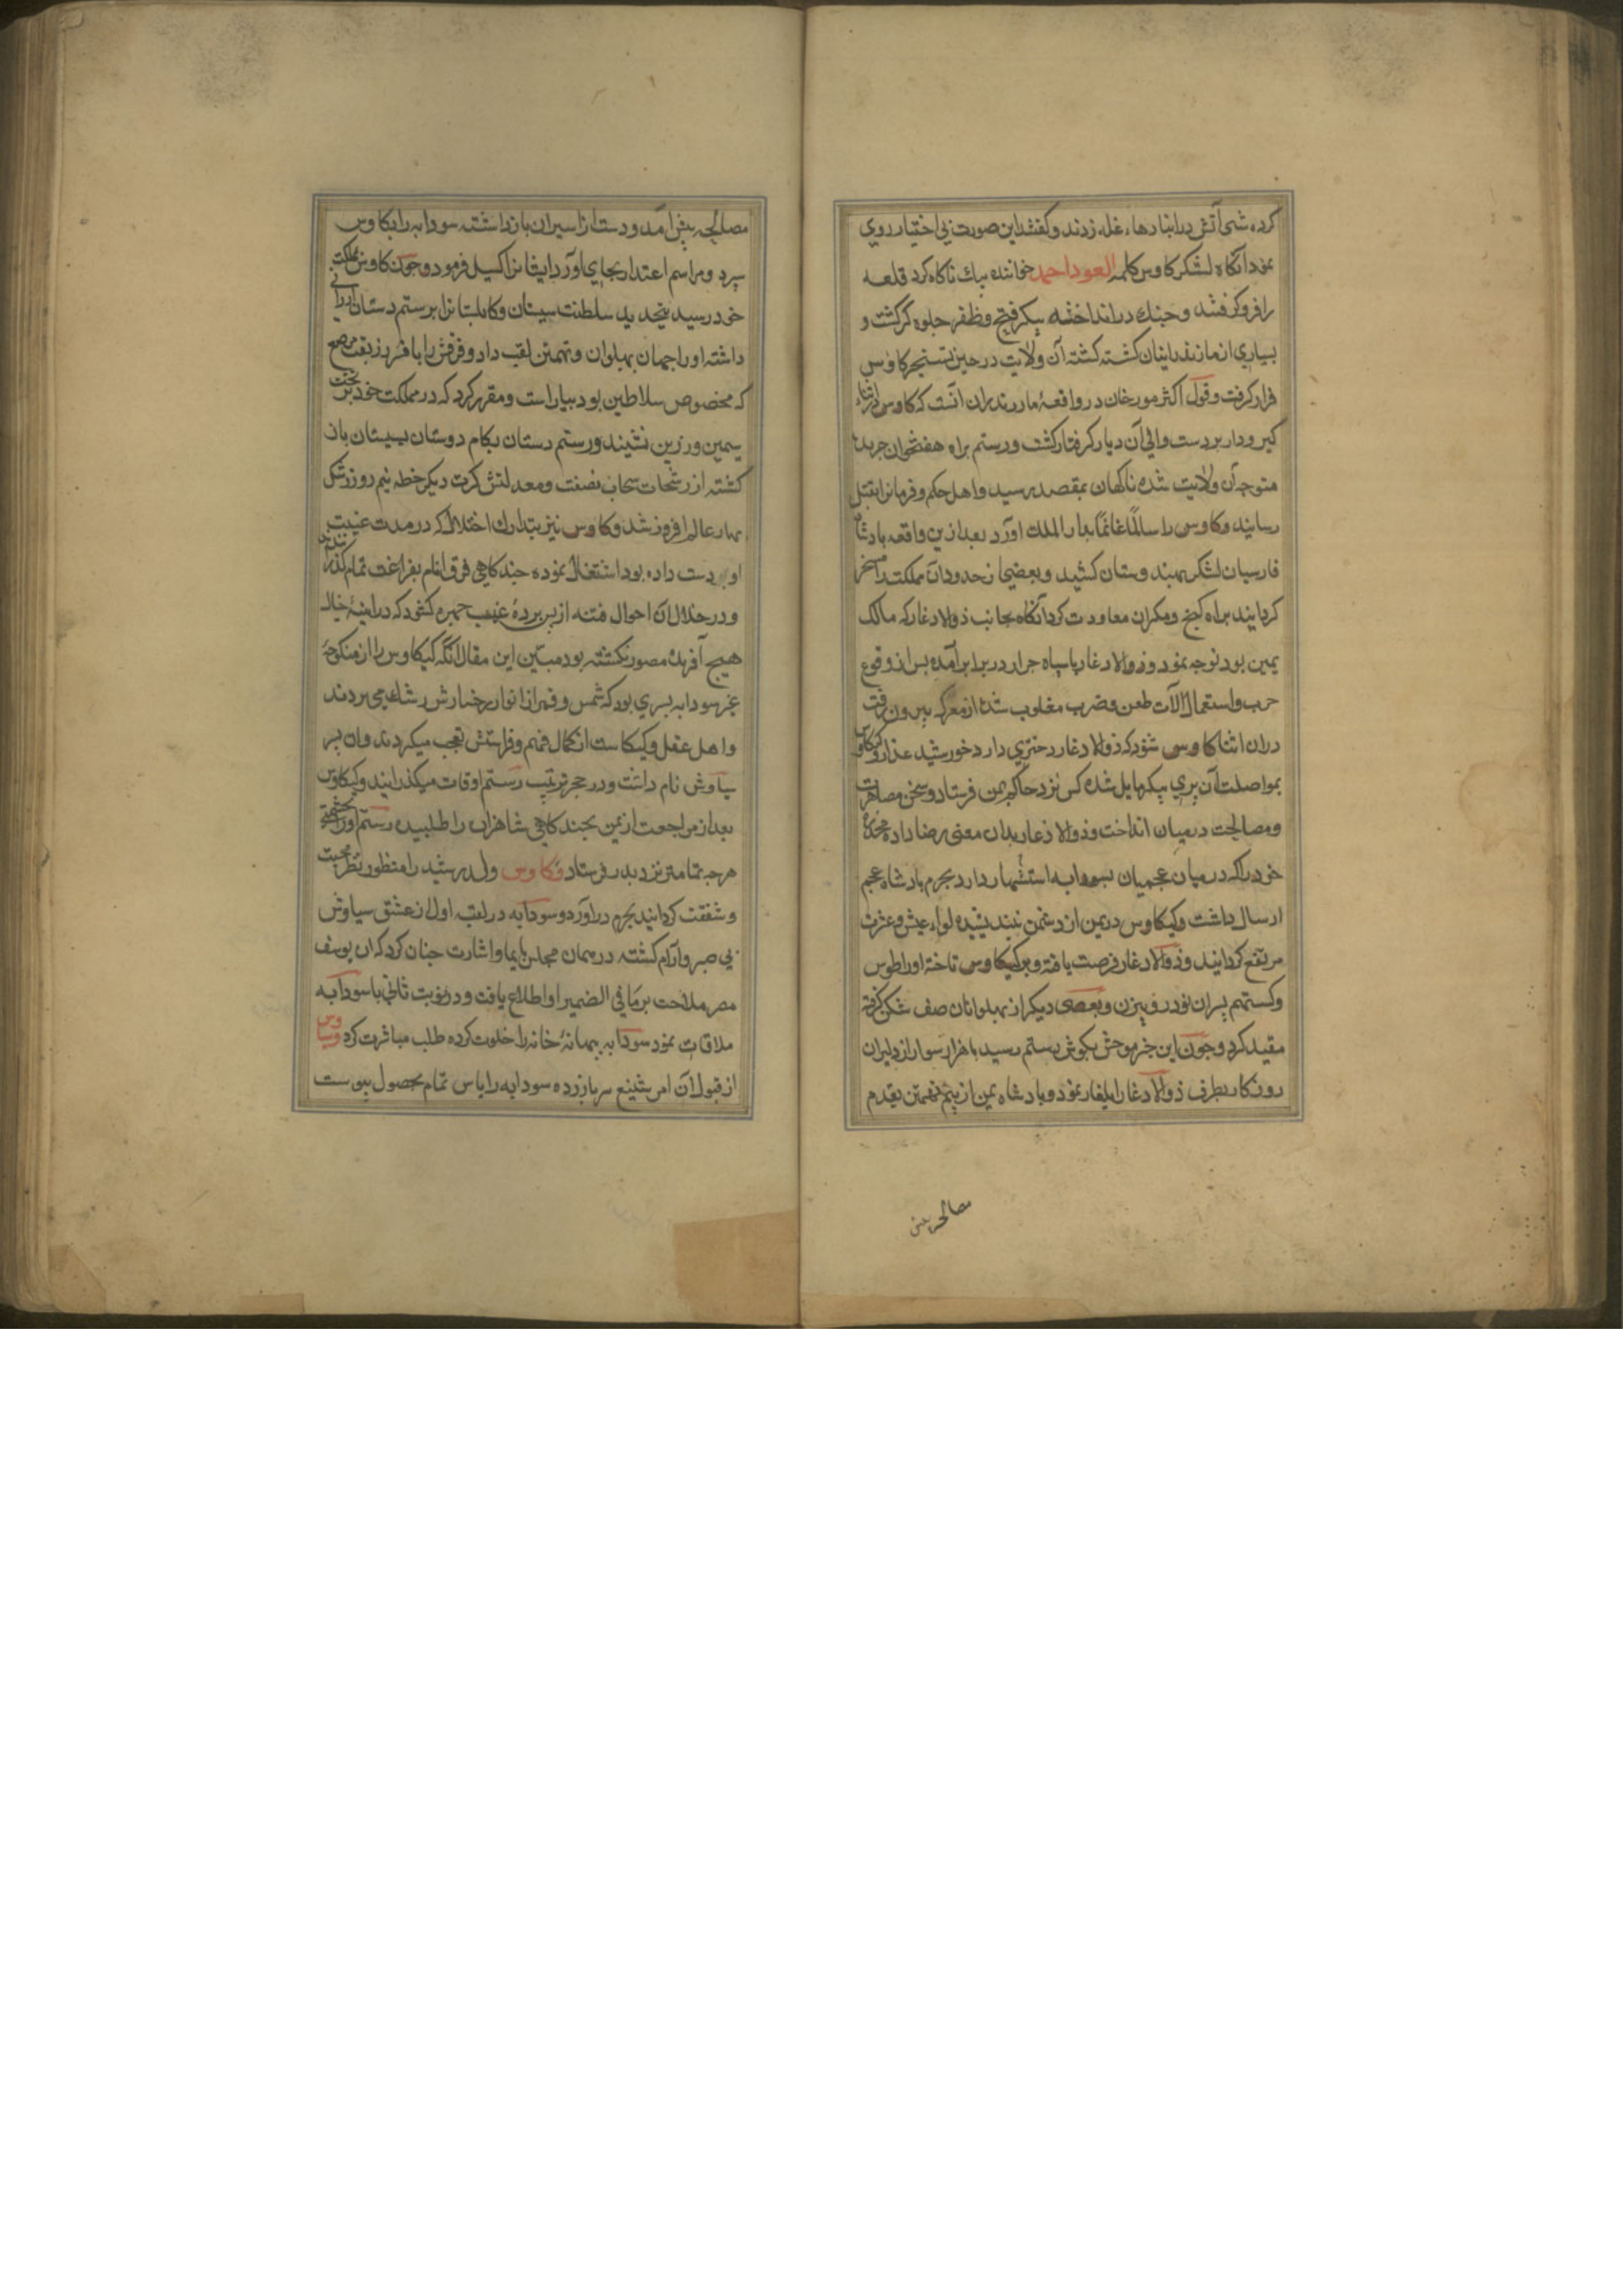 کرده شبی آتش در انبارهاء غله زدند و کفتند این صورت بی اختیار روی
نمود آنکاه لشکر کاوس کلمه العود احمد خوانده بیک ناکاه کرد قلعه
را فرو کرفتند و جنک در انداختند پیکر فتح و ظفر جلوه کر کشت و
بسیاری از مازندرانیان کشته کشته آن ولایت در حیز تسخیر کاوس
قرار کرفت و قول اکثر مورخان در واقعهٔ مازندران آنست که کاوس در اثناء
کیر و دار بر دست والی آن دیار کرفتار کشت و رستم براه هفتخوان جریده
متوجه آن ولایت شده ناکهان بمقصد رسید و اهل حکم و فرمانرا بقتل
رسانید و کاوس را سالمًا غانمًا بدار الملک آورد بعد ازین واقعه بادشاه
فارسیان لشکر بهندوستان کشید و بعضی از حدود آن مملکت را مسخر
کردانیده براه کیج و مکران معاودت کرد آنکاه بجانب ذوالادغار که مالک
یمن بود توجه نمود و ذوالادغار با سپاه جرار در برابر آمده بس از وقوع
حرب و استعمال آلات طعن و ضرب مغلوب شده از معرکه بیرون رفت
دران اثنا کاوس شنود که ذوالادغار دختری دارد خورشید عذار و کیکاوس
بمواصلت آن پری پیکر مایل شده کس نزد حاکم یمن فرستاد و سخن مصاهرت
و مصالحت درمیان انداخت و ذوالادغار بدان معنی رضا داده مخدرهٔ
خود را که درمیان عجمیان بسودابه اشتهار دارد بحرم بادشاه عجم
ارسال داشت و کیکاوس در یمن از دشمن نیندیشیده لواء عیش و عشرت
مرتفع کردانید و ذوالادغار فرصت یافته و بر کیکاوس تاخته او را طوس
و کستهم پسران نوذر و بیژن و بعضی دیکر از پهلوانان صف شکن کرفته
مقید کرد و چون این خبر موحش بکوش رستم رسید با هزار سوار از دلیران
روزکار بطرف ذوالادغار ایلغار نمود و بادشاه یمن از بیم تهمتن بقدم
مصالحه پیش
مصالحه پیش آمد و دست از اسیران باز داشته سودابه را بکاوس
سپرد و مراسم اعتذار بجای آورد ایشانرا کسیل فرمود و چون کاوس بمملکت
خود رسید بتجدید سلطنت سیستان و کابلستانرا برستم دستان ارزانی
داشته او را جهان پهلوان و تهمتن لقب داد و فرقش را بافسر زربفت مرصع
که مخصوص سلاطین بود بیاراست و مقرر کرد که در مملکت خود بر تخت
سیمین و زرین نشیند و رستم دستان بکام دوستان بسیستان باز
کشته از رشحات سحاب نصفت و معدلتش کرت دیکر خطه نیم روز رشک
بهار عالم افروز شد و کاوس نیز بتدارک اختلال که در مدت غیبت
او دست داده بود اشتغال نموده چندکاهی فرق انام بفراغت تمام کذرانیدند
و در خلال آن احوال فتنه از پس پردهٔ غیب چهره کشود که در آینهٔ خیال
هیچ آفریدهٔ مصور نکشته بود مبین این مقال آنکه کیکاوس را از منکوحهٔ
غیر سودابه پسری بود که شمس و قمر از انوار رخسارش رشک می بردند
و اهل عقل و کیاست از کمال فهم و فراستش تعجب میکردند و ان پسر
سیاوش نام داشت و در حجر تربیت رستم اوقات میکذرانید و کیکاوس
بعد از مراجعت از یمن بچندکاهی شاهزاده را طلبیده رستم او را بحشمتی
هر چه تمامتر نزد پدر فرستاد و کاوس ولد رشید را منظور نظر محبت
و شفقت کردانید بحرم در آورد و سودابه در لقیه اول از عشق سیاوش
بی صبر و آرام کشته در همان مجلس بایما و اشارت چنان کرد که ان یوسف
مصر ملاحت بر ما فی الضمیر او اطلاع یافت و در نوبت ثانی با سودابه
ملاقات نمود سودابه ببهانهٔ خانه را خلوت کرده طلب مباشرت کرد و سیاوس
از قبول آن امر شنیع سر باز زده سودابه را یاس تمام بحصول پیوست